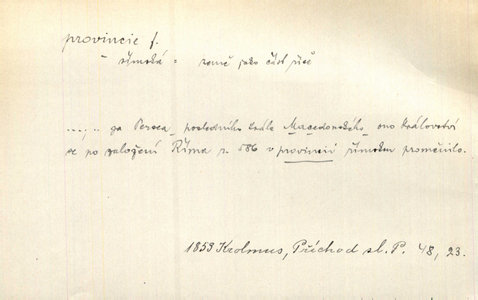 provincie f.
- římská = země jako část říše
..., .. za Persea, posledního krále Macedonského, ono království
se po založení Říma r. 586 v provincii římskou proměnilo.
1853 Krolmus, Příchod sl. P. 48, 23.